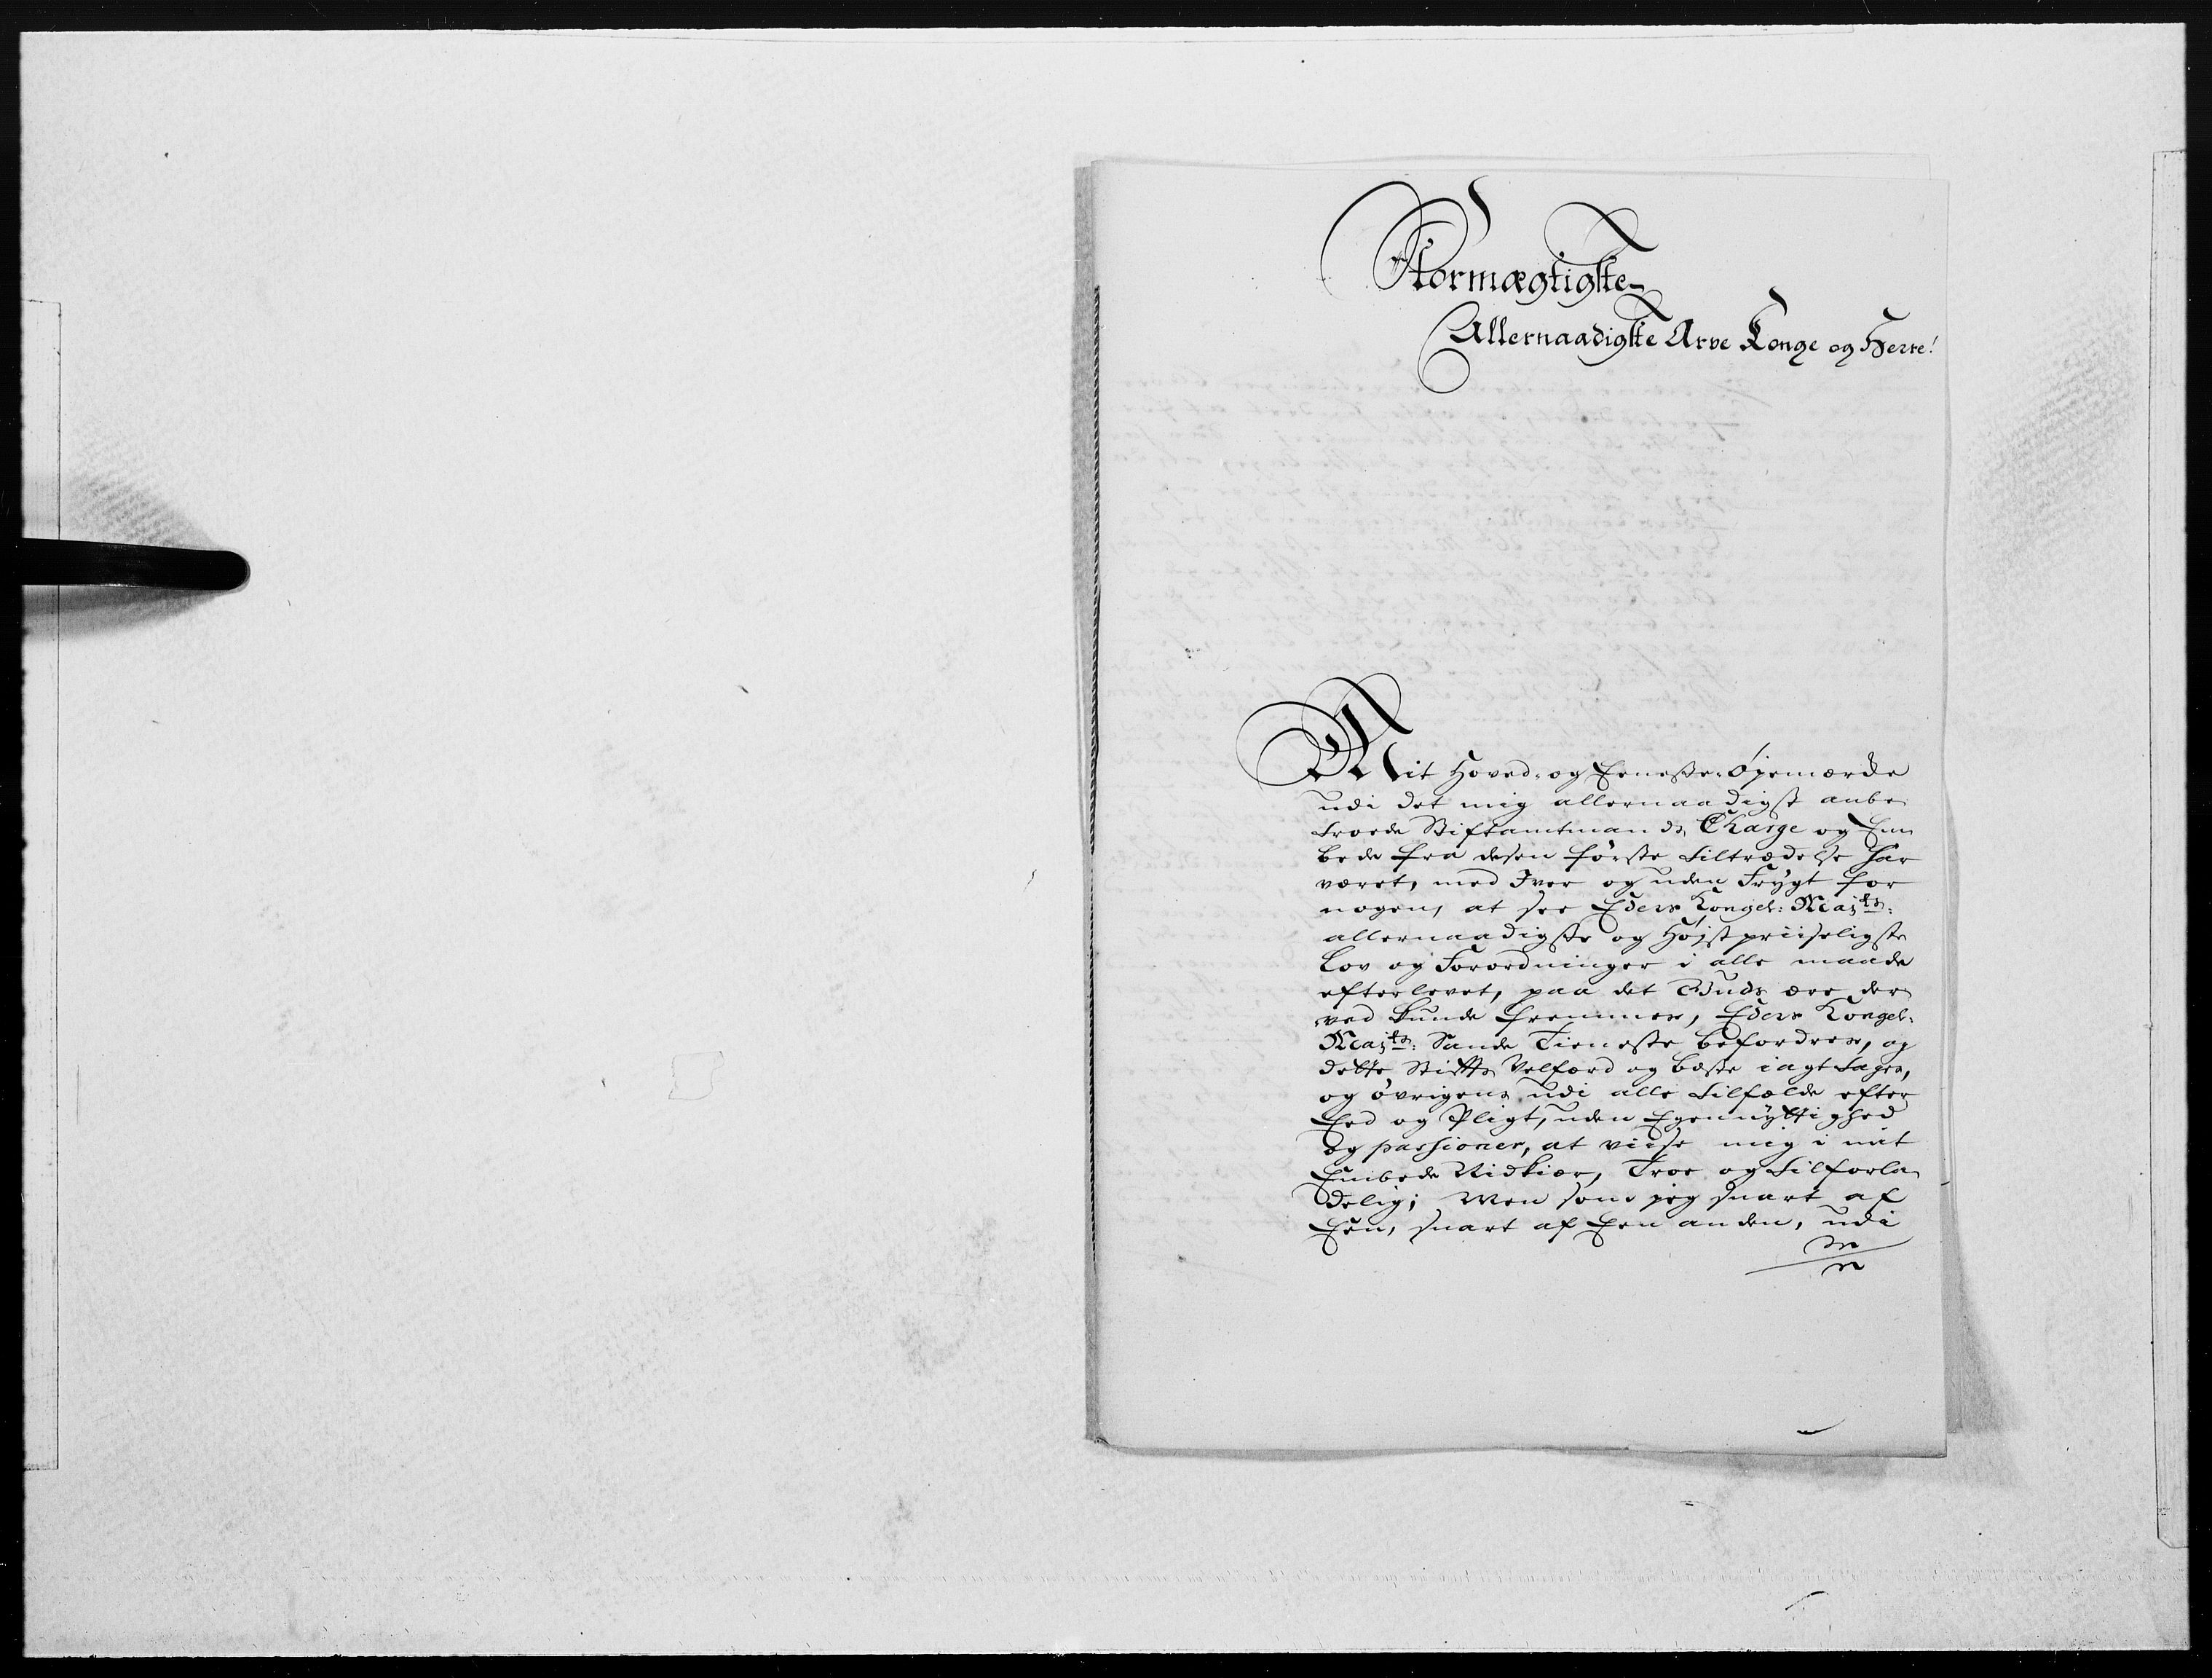 Stormægtigste
Allernaadigste Arve Konge og Herre!
Mit Hoved- og Eeneste Øjemærke
udi det mig allernaadigst anbe-
troede Stiftamtmands Charge og Em-
bede fra desen første tiltrædelse har
været, med Iver og uden Frygt for
nogen, at see Eders Kongel: Maj:ts
allernaadigste og Højstpriiseligste
Lov og Forordninger i alle maade
efterlevet, paa det Guds ære der-
ved kunde fremmes, Eders Kongel:
Maj:ts Sande Tieneste befordres, og
dette Stifts Velfærd og beste iagttages,
og øvrigens udi alle tilfælde efter
Eed og Pligt, uden Egennyttighed
og passioner, at viise mig i mit
Embede Nidkiær, Troe og tilforla-
delig; Men som jeg snart af
Een, snart af Een anden, udi